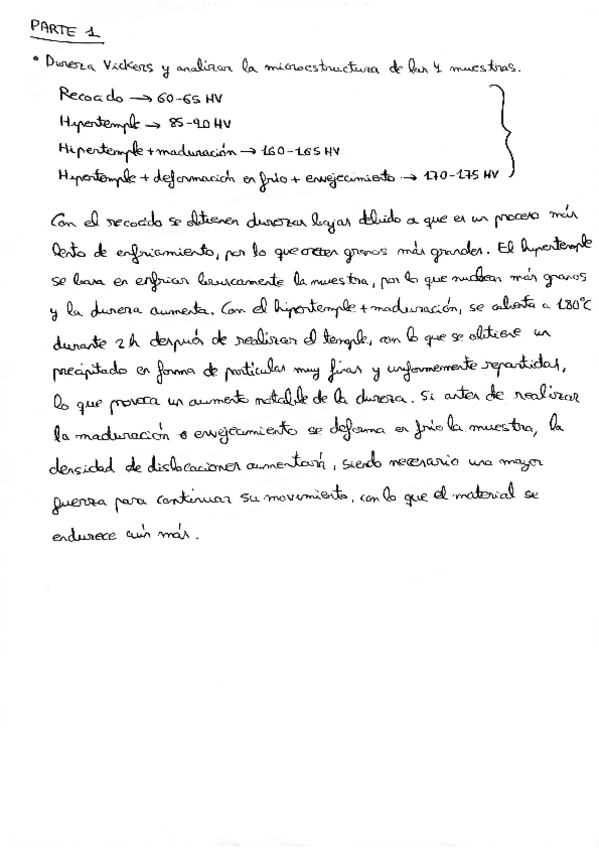 PARTE 1
• Dureza Vickers y analizar la microestructura de las 4 muestras.
Recocido → 60-65 HV
Hipertemple → 85-90 HV
Hipertemple + maduración → 160-165 HV
Hipertemple + deformación en frío + envejecimiento → 170-175 HV
Con el recocido se obtienen durezas bajas debido a que es un proceso más
lento de enfriamiento, por lo que crecen granos más grandes. El hipertemple
se basa en enfriar bruscamente la muestra, por lo que nuclean más granos
y la dureza aumenta. Con el hipertemple + maduración, se calienta a 180°C
durante 2 h después de realizar el temple, con lo que se obtiene un
precipitado en forma de partículas muy finas y uniformemente repartidas,
lo que provoca un aumento notable de la dureza. Si antes de realizar
la maduración o envejecimiento se deforma en frío la muestra, la
densidad de dislocaciones aumentará, siendo necesario una mayor
fuerza para continuar su movimiento, con lo que el material se
endurece aún más.